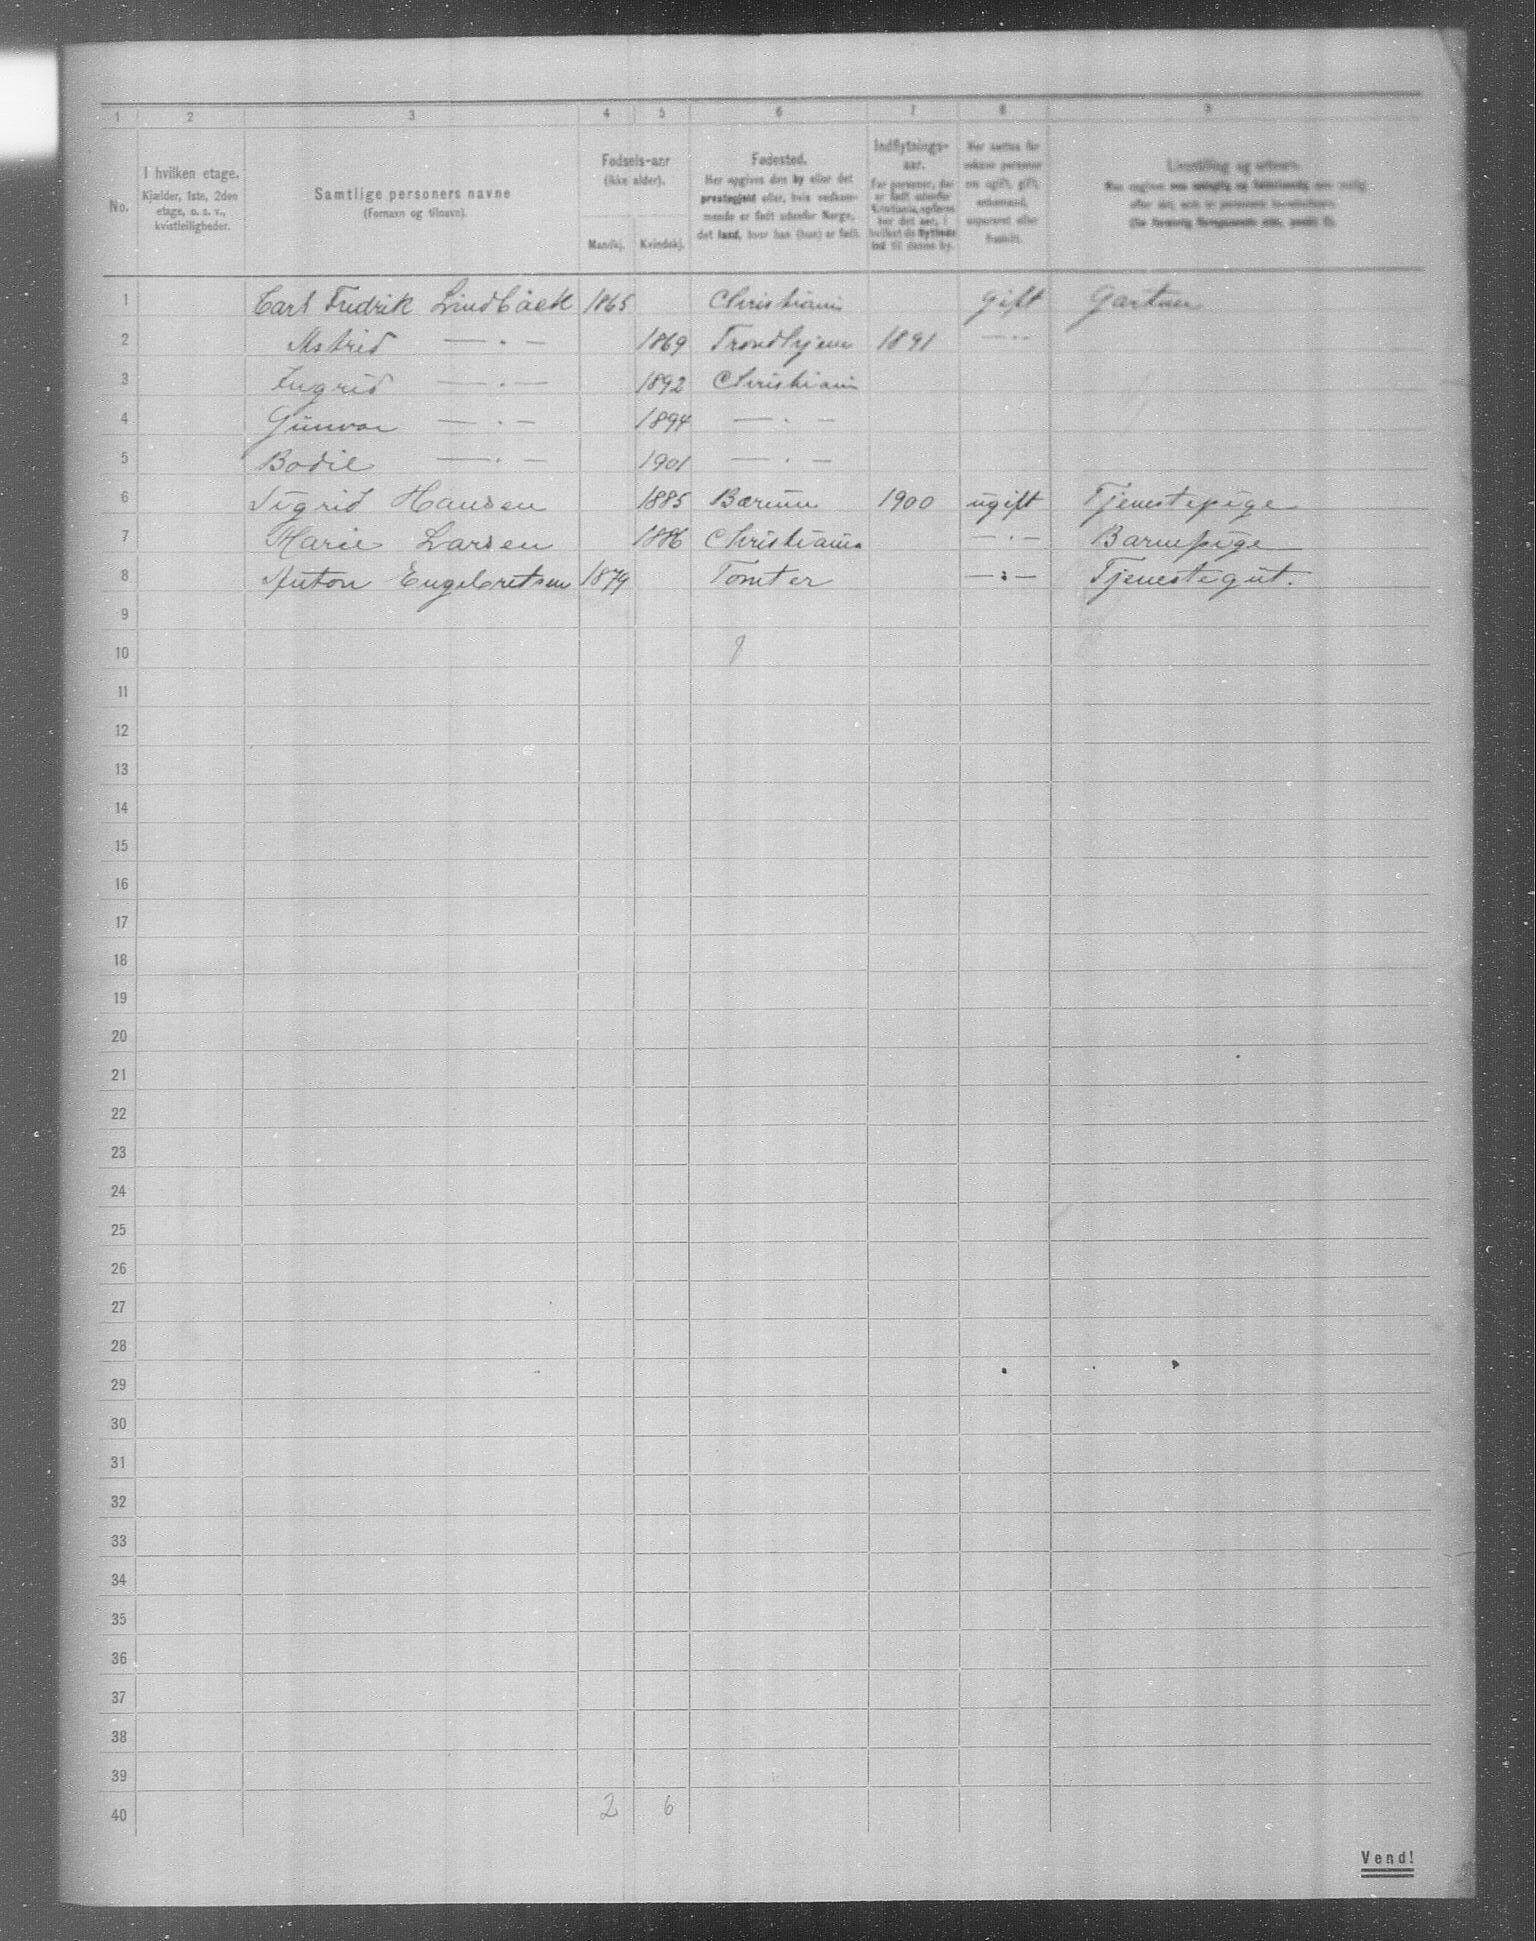 1 2 3 4 5 6 7 8 9
No. I hvilken etage. Kjælder, 1ste, 2den etage, o. s. v., kvistleiligheder.
Samtlige personers navne (Fornavn og tilnavn).
Fødsels-aar (ikke alder). Mandkj. Kvindekj.
Fødested. Her opgives den by eller det prestegjeld eller, hvis vedkommende er født udenfor Norge, det land, hvor han (hun) er født.
Indflytnings-aar. For personer, der er født udenfor Kristiania, opføres her det aar, i hvilket de flyttede ind til denne by.
Her sættes for enhver person om ugift, gift, enkemand, separeret eller fraskilt.
1 Carl Fredrik Lindbäck 1865 Christiania gift Gartner
2 Astrid — . — 1869 Trondhjem 1891 — . .
3 Ingrid — . — 1892 Christiania
4 Gunvor — . — 1894 — . —
5 Bodil — . — 1901 — . —
6 Sigrid Hansen 1885 Bærum 1900 ugift Tjenestepige
7 Marie Larsen 1886 Christiania — . — Barnepige
8 Anton Engebretsen 1879 Tomter — . — Tjenestegut.
9
10
11
12
13
14
15
16
17
18
19
20
21
22
23
24
25
26
27
28
29
30
31
32
33
34
35
36
37
38
39
40 2 6
Vend!